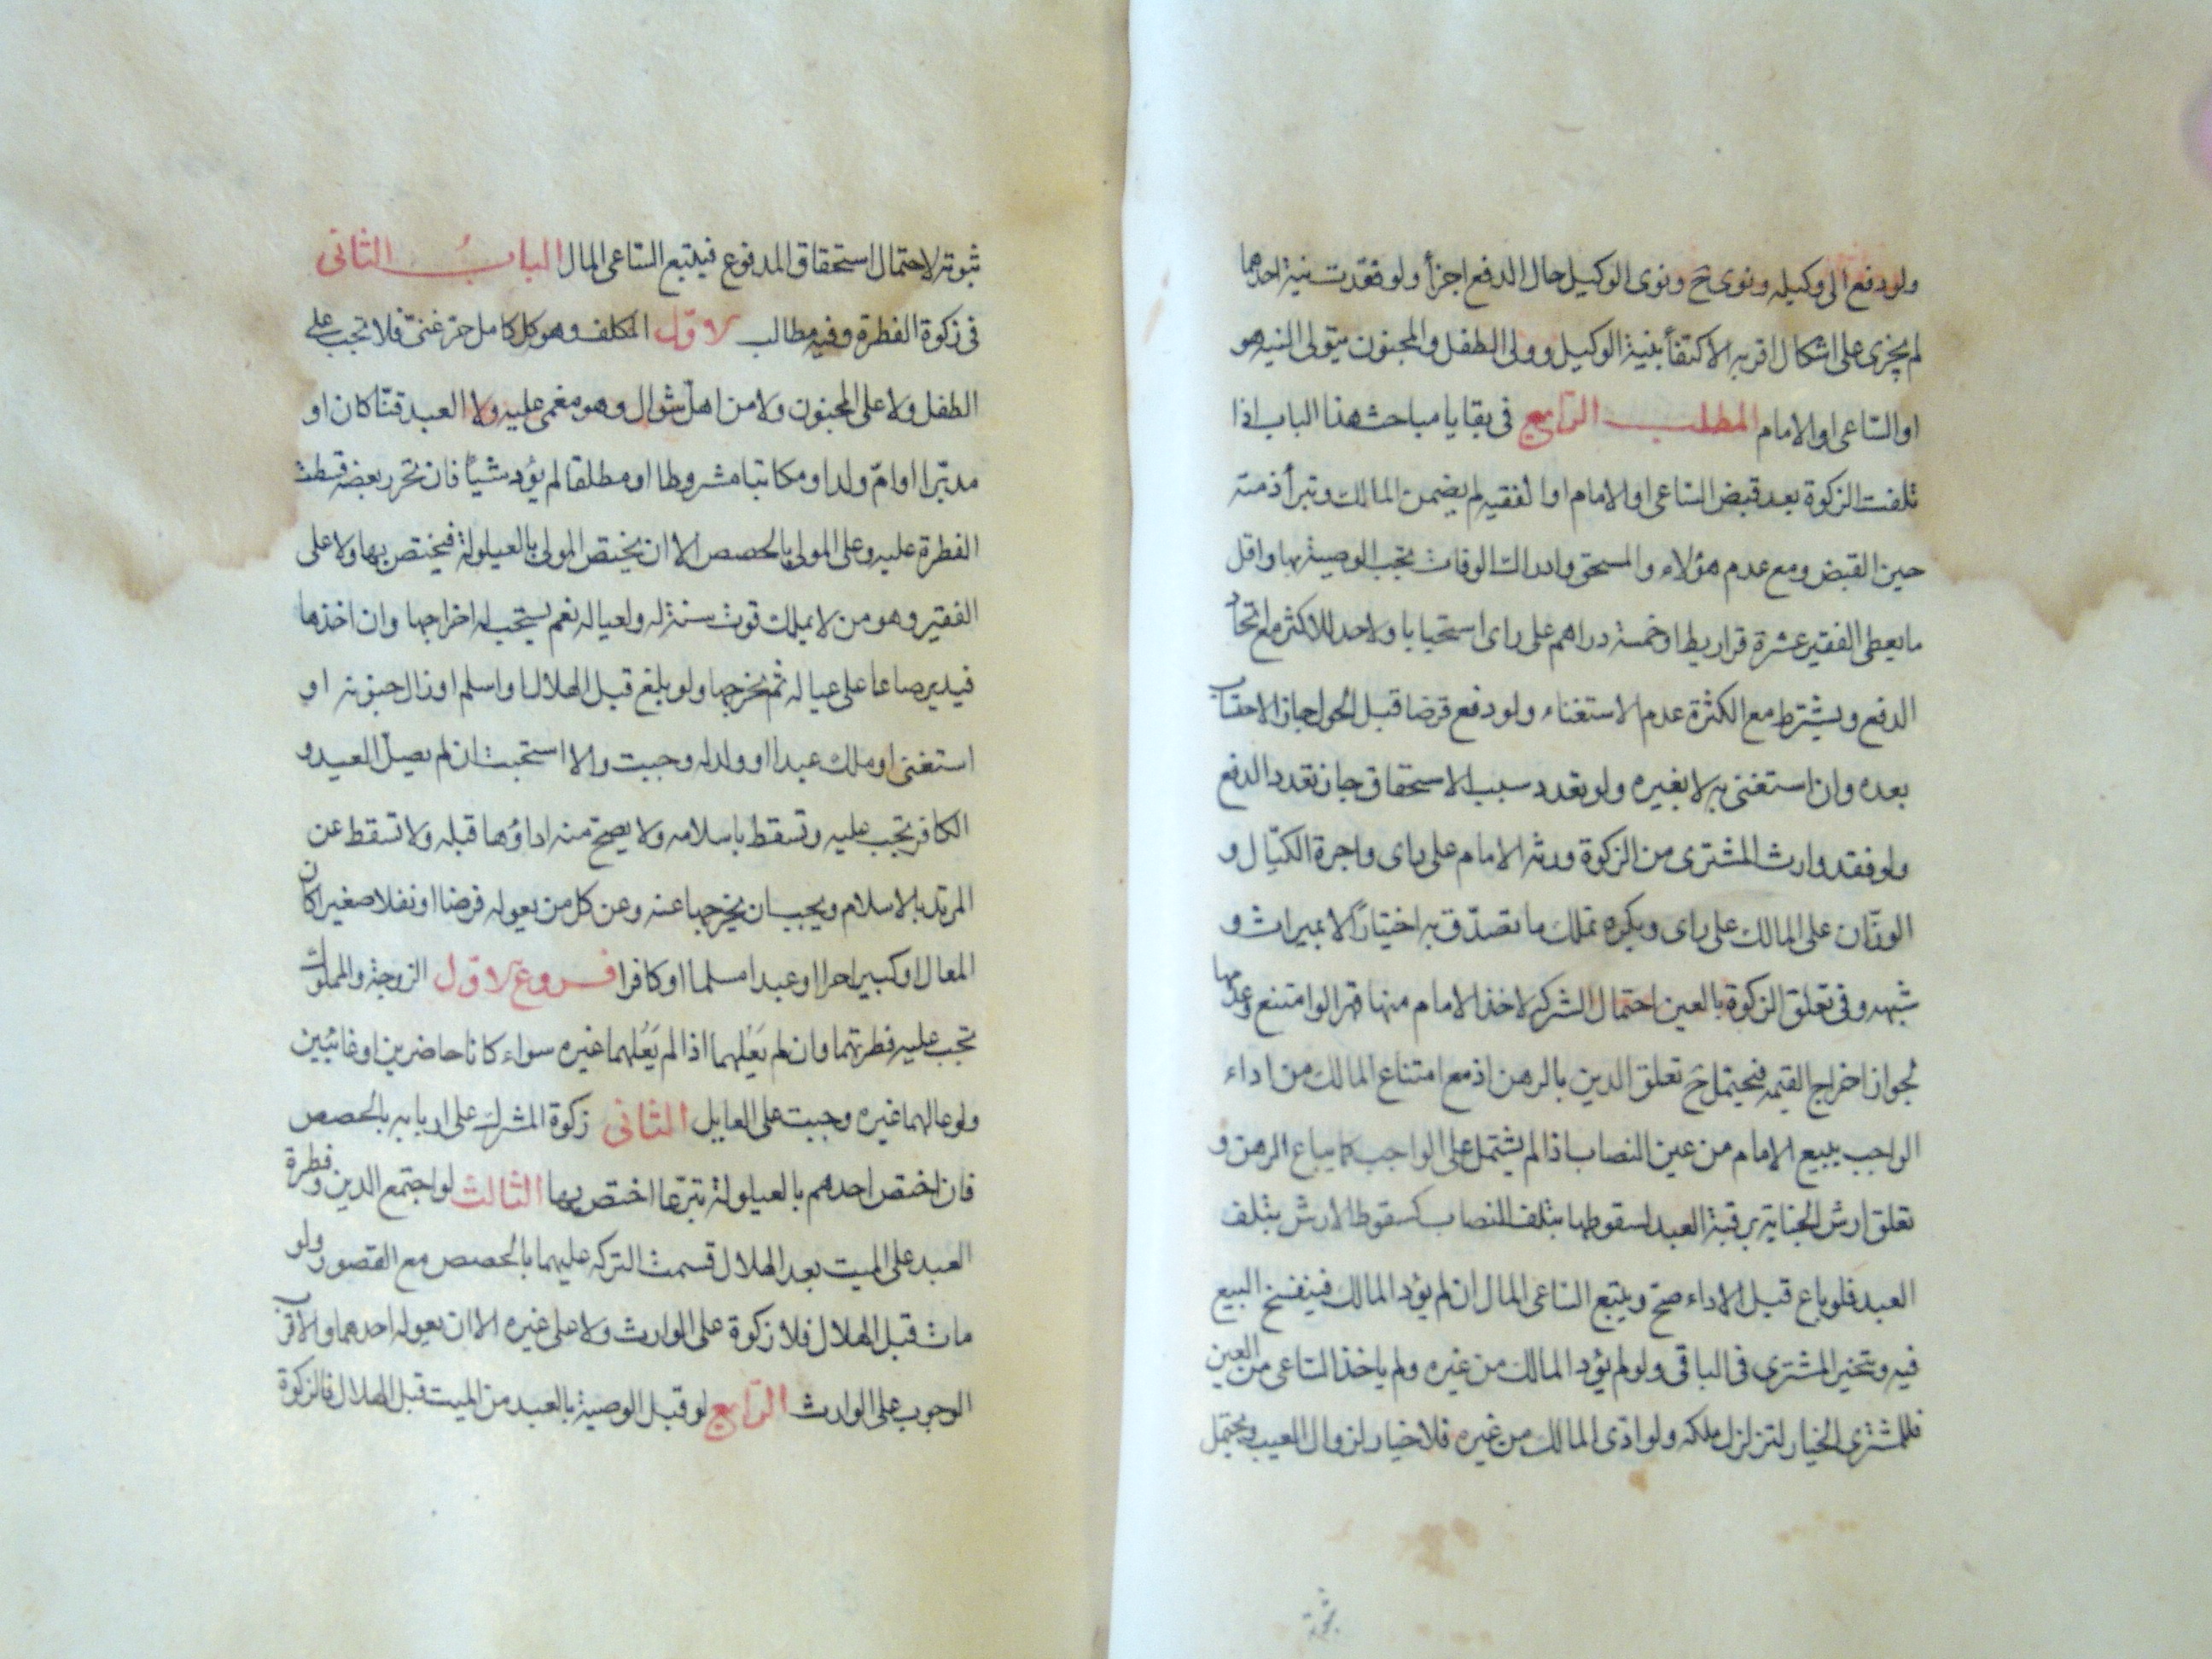 ولو دفع الى وكيله ونوى ح ونوى الوكيل حال الدفع اجزأ ولو فقدت نية احدهما
لم يجزى على اشكال اقربه الاكتفأ بنية الوكيل وولى الطفل والمجنون يتولى النيه هو
او الساعى او الامام المطلب الرابع فى بقايا مباحث هذا الباب اذا
تلفت الزكوة بعد قبض الساعى او الامام او الفقيه لم يضمن المالك وتبرأ ذمته
حين القبض ومع عدم هؤلاء والمستحق وادراك الوفاة تجب الوصية بها واقل
ما يعطى الفقير عشرة قراريط او خمسة دراهم على راى استحبابا ولا حد للاكثر مع اتحاد
الدفع ويشترط مع الكثرة عدم الاستغناء ولو دفع قرضا قبل الحول جاز الاحتساب
بعده وان استغنى به لا بغيره ولو تعدد سبب الاستحقاق جاز تعدد الدفع
ولو فقد وارث المشترى من الزكوة ورثه الامام على راى واجرة الكيّال و
الوزّان على المالك على راى ويكره تملك ما تصدّق به اختيارًا لا بميراث و
شبهه وفى تعلق الزكوة بالعين احتمال الشركه لاخذ الامام منها قهرا لو امتنع وعدمها
لجواز اخراج القيمه فيحتمل ح تعلق الدين بالرهن اذ مع امتناع المالك من اداء
الواجب يبيع الامام من عين النصاب اذا لم يشتمل على الواجب كما يباع الرهن و
تعلق ارش الجناية برقبة العبد لسقوطها بتلف النصاب كسقوط الارش بتلف
العبد فلو باع قبل الاداء صح ويتبع الساعى المال ان لم يؤد المالك فينفسخ البيع
فيه ويتخير المشترى فى الباقى ولو لم يؤد المالك من غيره ولم ياخذ الساعى من العين
فللمشترى الخيار لتزلزل ملكه ولو ادّى المالك من غيره فلا خيار لزوال العيب ويحتمل
ثبوته لاحتمال استحقاق المدفوع فيتبع الساعى المال الباب الثانى
فى زكوة الفطرة وفيه مطالب الاوّل المكلف وهو كل كامل حرّ غنىّ فلا تجب على
الطفل ولا على المجنون ولا من اهلّ شوال وهو مغمى عليه ولا العبد قنّا كان او
مدبّرا او امّ ولد او مكاتبا مشروطا او مطلقا لم يؤد شيأً فان تحرر بعضه قسطت
الفطرة عليه وعلى المولى بالحصص الا ان يختص المولى بالعيلولة فيختص بها ولا على
الفقير وهو من لا يملك قوت سنة له ولعياله نعم يستحب له اخراجها وان اخذها
فيدير صاعا على عياله ثم يخرجها ولو بلغ قبل الهلال او اسلم او زال جنونه او
استغنى او ملك عبدا او ولد له وجبت والا استحبت ان لم يصلّ العيد و
الكافر تجب عليه وتسقط باسلامه ولا يصحّ منه اداؤها قبله ولا تسقط عن
المرتد بالاسلام ويجب ان يخرجها عنه وعن كل من يعوله فرضا او نفلا صغيرا كان
المعال او كبيرا حرا او عبدا مسلما او كافرا فروع الاول الزوجة والمملوك
تجب عليه فطرتهما وان لم يَعُلهما اذا لم يَعُلهما غيره سواء كانا حاضرين او غائبين
ولو عالهما غيره وجبت على العايل الثانى زكوة المشترك على اربابه بالحصص
فان اختص احدهم بالعيلولة تبرّعا اختص بها الثالث لو اجتمع الدين وفطرة
العبد على الميت بعد الهلال قسمت التركه عليهما بالحصص مع القصور ولو
مات قبل الهلال فلا زكوة على الوارث ولا على غيره الا ان يعوله احدهما والاقرب
الوجوب على الوارث الرّابع لو قبل الوصية بالعبد من الميت قبل الهلال فالزكوة